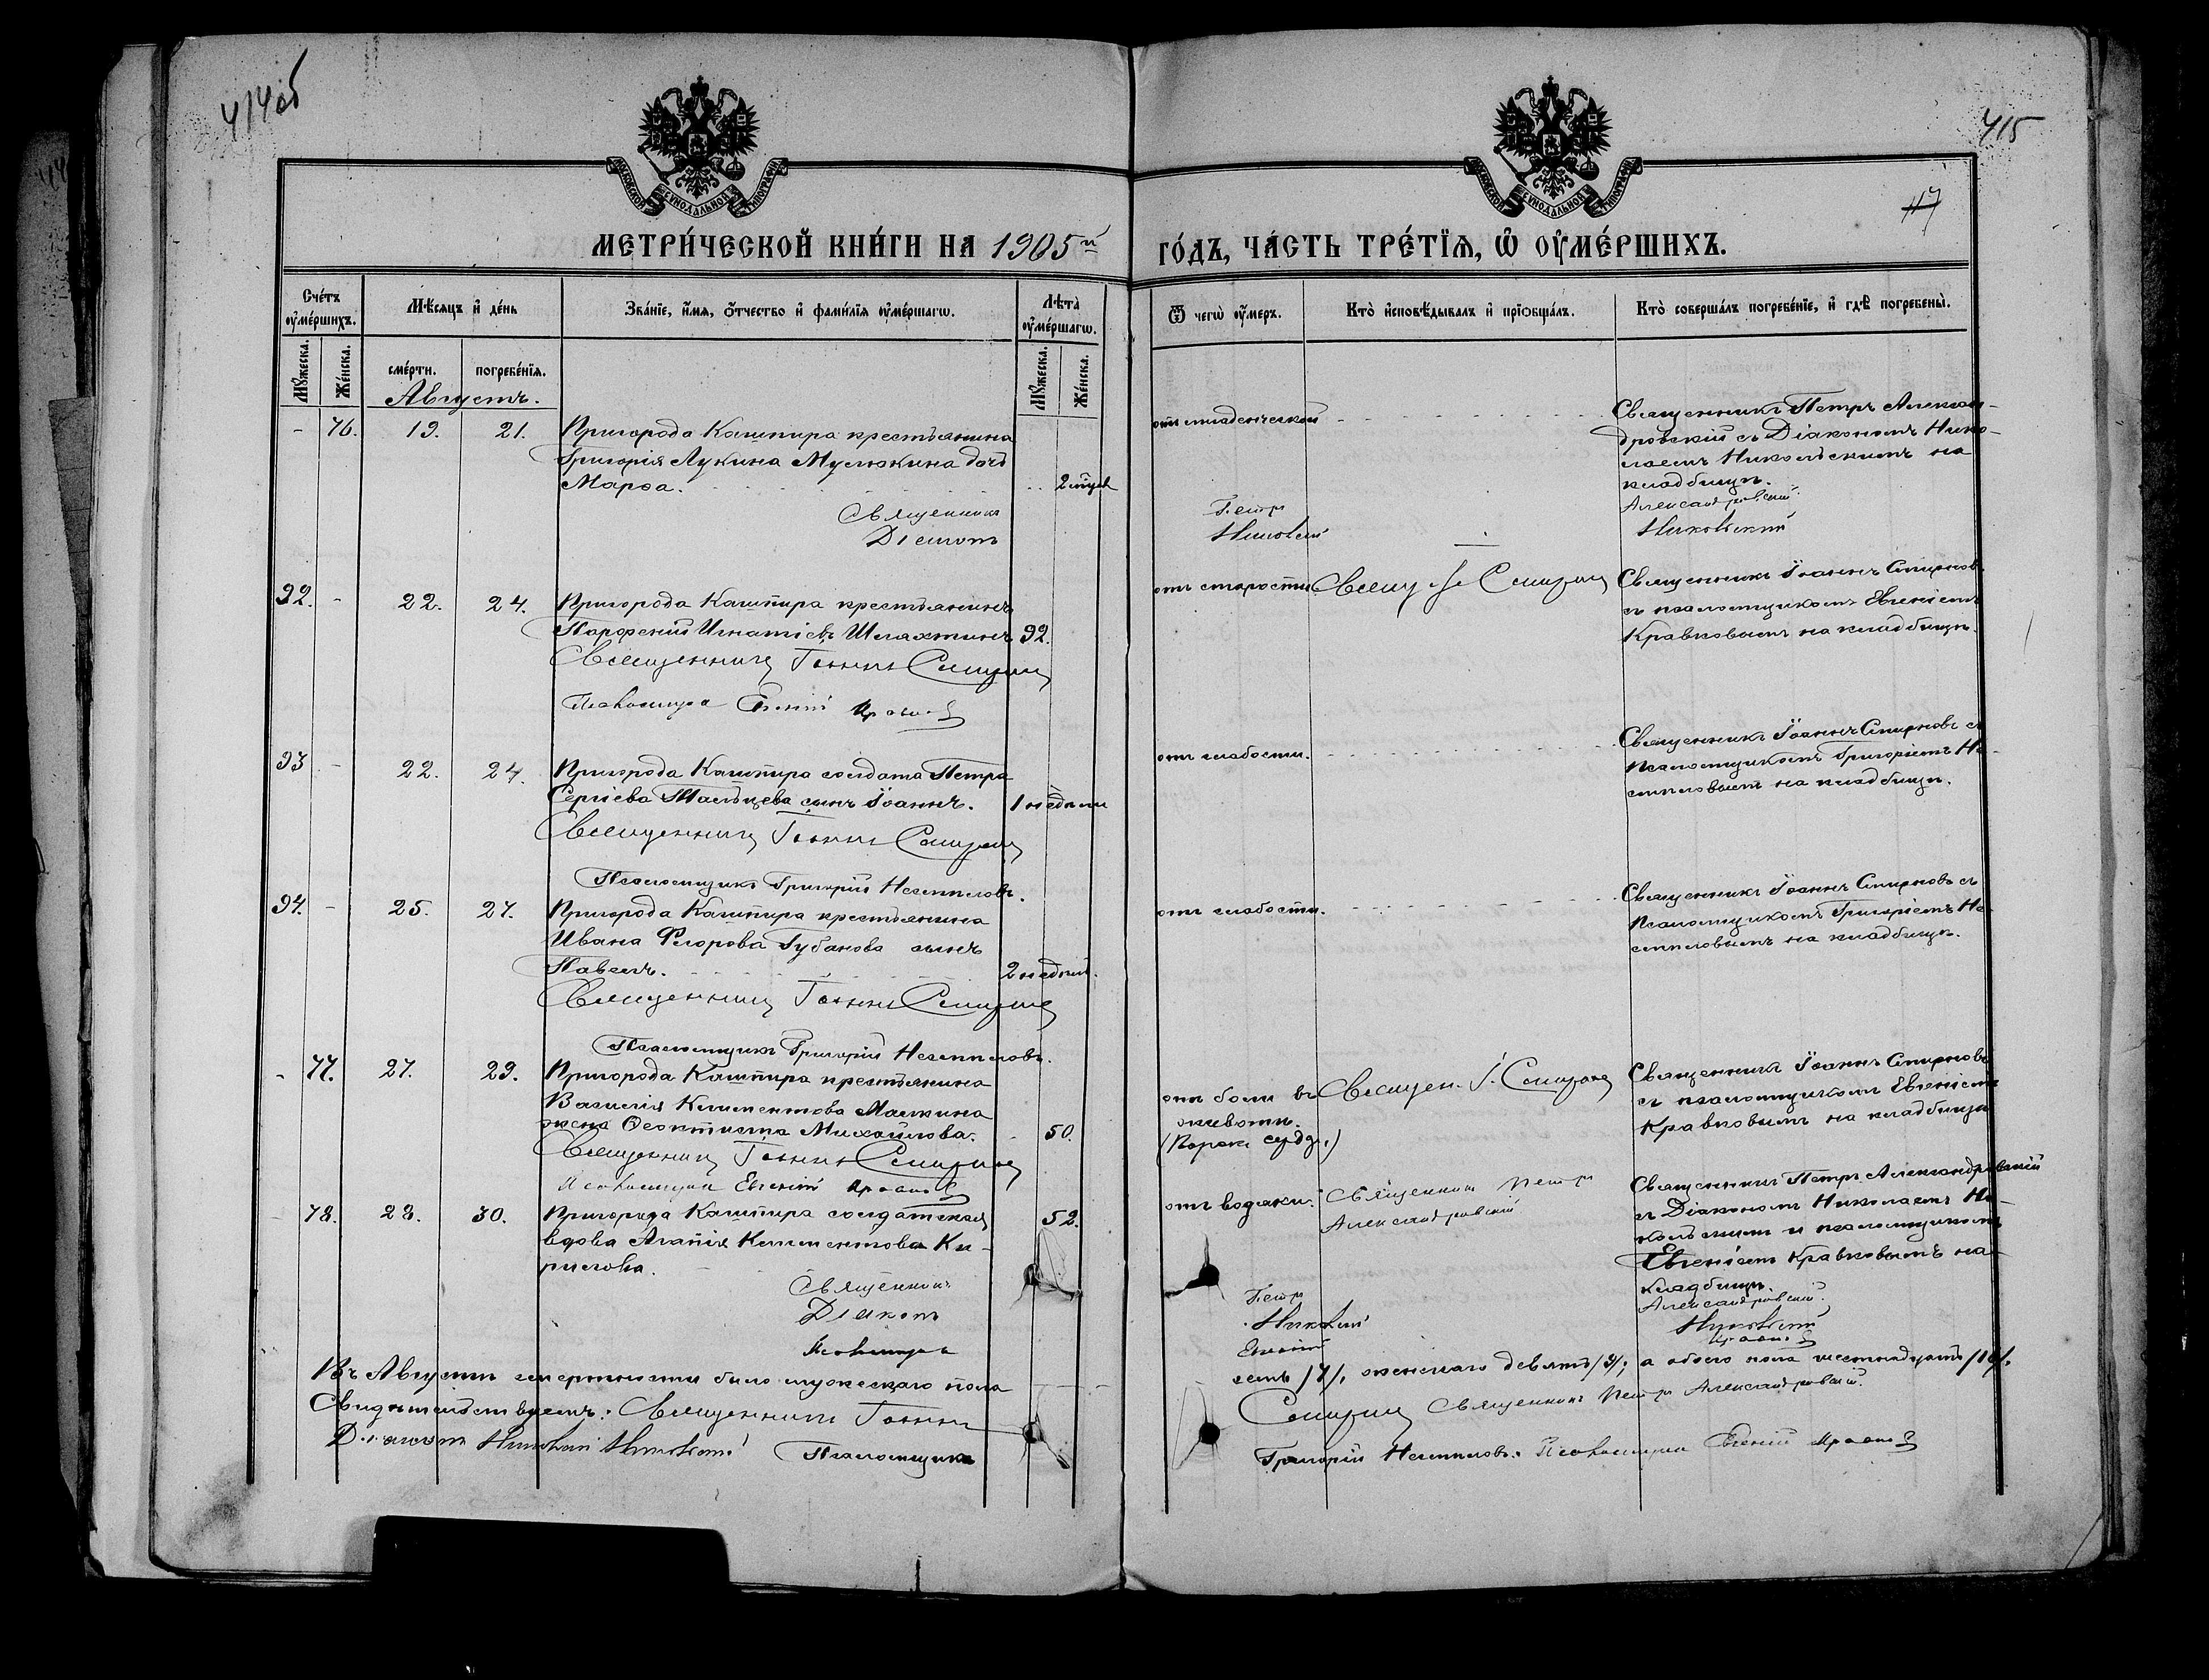 414об
415
117
МОСКОВСКОЙ СѴНОДАЛЬНОЙ ТИПОГРАФІИ
МОСКОВСКОЙ СѴНОДАЛЬНОЙ ТИПОГРАФІИ
МЕТРИ́ЧЕСКОЙ КНИ́ГИ НА 1905й
ГО́ДЪ, ЧА́СТЬ ТРЕ́ТІЯ, Ѽ ОУ҆МЕ́РШИХЪ.
Сче́тъ оу҆ме́ршихъ.
Мѣ́сяцъ и҆ де́нь
Зва́ніе, и҆́мя, ѻ҆́тчество и҆ фами́лія оу҆ме́ршагѡ.
Лѣ́та оу҆ме́ршагѡ.
Ѿ чегѡ̀ оу҆́меръ.
Кто̀ и҆сповѣ́дывалъ и҆ прїѻбща́лъ.
Кто̀ соверша́лъ погребе́ніе, и҆ гдѣ̀ погребены̀.
Мꙋ́жеска.
Же́нска.
сме́рти.
погребе́нія.
Мꙋ́жеска.
Же́нска.
Августъ.
- 76. 19. 21. Пригорода Кашпира крестьянина
Григорія Лукина Мулюкина дочь
Марѳа. 2
Священникъ
Діаконъ
отъ младенческой
Петръ
Николай
Священникъ Петръ Алексан-
дровскій съ Діакономъ Нико-
лаемъ Никольскимъ на
кладбищѣ.
Александровскій.
Никольский
92. - 22. 24. Пригорода Кашпира крестьянинъ
Парфеній Игнатіевъ Шлахтинъ 92.
Священникъ Іоаннъ Смирнов
Псаломщикъ Евгеній Кравков
отъ старости Свящ. І. Смирнов
Священникъ Іоаннъ Смирновъ
съ псаломщикомъ Евгеніемъ
Кравковымъ на кладбищѣ.
93 - 22. 24. Пригорода Кашпира солдата Петра
Сергіева Пальцева сынъ Іоаннъ. 1 недѣли
Священникъ Іоаннъ Смирнов
Псаломщикъ Григорій Несмѣловъ.
отъ слабости.
Священникъ Іоаннъ Смирновъ съ
Псаломщикомъ Григоріемъ Не-
смѣловымъ на кладбищѣ.
94. - 25. 27. Пригорода Кашпира крестьянина
Ивана Ѳедорова Губанова сынъ
Павелъ. 2 недѣли.
Священникъ Іоаннъ Смирнов
Псаломщикъ Григорій Несмѣловъ.
отъ слабости.
Священникъ Іоаннъ Смирновъ съ
Псаломщикомъ Григоріемъ Не-
смѣловымъ на кладбищѣ.
- 77. 27. 29. Пригорода Кашпира крестьянина
Василія Климентова Малкина
жена Ѳеоктиста Михайлова. - 50.
Священникъ Іоаннъ Смирнов
Псаломщикъ Евгеній Кравков
отъ боли въ
животѣ.
(Порокъ сердц.)
Священ. І. Смирнов
Священникъ Іоаннъ Смирновъ
съ псаломщикомъ Евгеніемъ
Кравковымъ на кладбищѣ
- 78. 28. 30. Пригорода Кашпира солдатская
вдова Агапія Климентова Ки-
рилова. 52.
Священникъ
Діаконъ
Псаломщикъ
отъ водянки.
Священникъ Петръ
Александровскій
Петръ
Николай
Евгеній
Священникъ Петръ Александровскій
съ Діакономъ Николаемъ Ни-
кольскимъ и псаломщикомъ
Евгеніемъ Кравковымъ на
кладбищѣ.
Александровскій.
Никольский
Кравков
Въ Августѣ смертности было мужескаго пола
семь /7/, женскаго девять /9/; а обоего пола шестнадцать /16/.
Свидѣтельствуемъ: Священникъ Іоаннъ
Смирнов Священникъ Петръ Александровскій.
Діаконъ Николай Никольский Псаломщикъ
Григорій Несмѣловъ. Псаломщикъ Евгеній Кравков